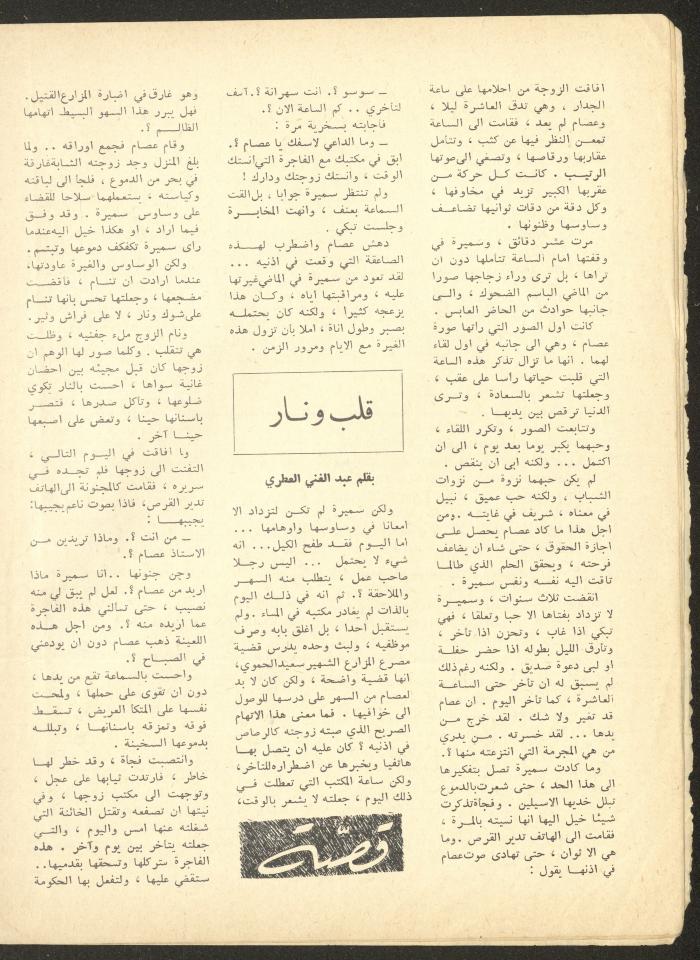 افاقت الزوجة من احلامها على ساعة
الجدار ، وهي تدق العاشرة ليلا ،
وعصام لم يعد ، فقامت الى الساعة
تمعن النظر فيها عن كثب ، وتتأمل
عقاربها ورقاصها ، وتصغي الى صوتها
الرتيب . كانت كل حركة من
عقربها الكبير تزيد في مخاوفها ،
وكل دقة من دقات ثوانيها تضاعف
وساوسها وظنونها .
مرت عشر دقائق ، وسميرة في
وقفتها امام الساعة تتأملها دون ان
تراها ، بل ترى وراء زجاجها صورا
من الماضي الباسم الضحوك ، والى
جانبها حوادث من الحاضر العابس .
كانت اول الصور التي رأتها صورة
عصام ، وهي الى جانبه في اول لقاء
لهما . انها ما تزال تذكر هذه الساعة
التي قلبت حياتها رأسا على عقب ،
وجعلتها تشعر بالسعادة ، وتـرى
الدنيا ترقص بين يديها .
وتتابعت الصور ، وتكرر اللقاء ،
وحبهما يكبر يوما بعد يوم ، الى ان
اكتمل ... ولكنه ابى ان ينقص .
لم يكن حبهما نزوة من نزوات
الشباب ، ولكنه حب عميق ، نبيل
في معناه ، شريف في غايته . ومن
اجل هذا ما كاد عصام يحصل على
اجازة الحقوق ، حتى شاء ان يضاعف
فرحته ، ويحقق الحلم الذي طالما
تاقت اليه نفسه ونفس سميرة .
انقضت ثلاث سنوات ، وسميرة
لا تزداد بفتاها الا حبا وتعلقا ، فهي
تبكي اذا غاب ، وتحزن اذا تأخر ،
وتأرق الليل بطوله اذا حضر حفلة
او لبى دعوة صديق . ولكنه رغم ذلك
لم يسبق له ان تأخر حتى الساعة
العاشرة ، كما تأخر اليوم . ان عصام
قد تغير ولا شك . لقد خرج من
يدها ... لقد خسرته . من يدري
من هي المجرمة التي انتزعته منها ؟.
وما كادت سميرة تصل بتفكيرها
الى هذا الحد ، حتى شعرت بالدموع
تبلل خديها الاسيلين . وفجأة تذكرت
شيئا خيل اليها انها نسيته بالمرة ،
فقامت الى الهاتف تدير القرص . وما
هي الا ثوان ، حتى تهادى صوت عصام
في اذنها يقول :
ـ سوسو ؟. انت سهرانة ؟. آسف
لتأخري .. كم الساعة الان ؟.
فأجابته بسخرية مرة :
ـ وما الداعي لاسفك يا عصام ؟.
ابق في مكتبك مع الفاجرة التي انستك
الوقت ، وانستك زوجتك ودارك !
ولم تنتظر سميرة جوابا ، بل القت
السماعة بعنف ، وانهت المخابرة
وجلست تبكي .
دهش عصام واضطرب لهـذه
الصاعقة التي وقعت في اذنيه ...
لقد تعود من سميرة في الماضي غيرتها
عليه ، ومراقبتها اياه ، وكان هذا
يزعجه كثيرا ، ولكنه كان يحتملـه
بصبر وطول اناة ، املا بأن تزول هذه
الغيرة مع الايام ومرور الزمن .
قلب ونار
بقلم عبد الغني العطري
ولكن سميرة لم تكن لتزداد الا
امعانا في وساوسها واوهامها ...
اما اليوم فقد طفح الكيل... انه
شيء لا يحتمل ... اليس رجلا
صاحب عمل ، يتطلب منه السهر
والملاحقة ؟. ثم انه في ذلك اليوم
بالذات لم يغادر مكتبه في المساء . ولم
يستقبل احدا ، بل اغلق بابه وصرف
موظفيه ، ولبث وحده يدرس قضية
مصرع المزارع الشهير سعيد الحموي،
انها قضية واضحة ، ولكن كان لا بد
لعصام من السهر على درسها للوصول
الى خوافيها . فما معنى هذا الاتهام
الصريح الذي صبته زوجته كالرصاص
في اذنيه ؟ كان عليه ان يتصل بها
هاتفيا ويخبرها عن اضطراره للتأخر،
ولكن ساعة المكتب التي تعطلت في
ذلك اليوم ، جعلته لا يشعر بالوقت،
قصّة
وهو غارق في اضبارة المزارع القتيل.
فهل يبرر هذا السهو البسيط اتهامها
الظالم ؟.
وقام عصام فجمع اوراقه .. ولما
بلغ المنزل وجد زوجته الشابة غارقة
في بحر من الدموع ، فلجأ الى لباقته
وكياسته ، يستعملهما سلاحا للقضاء
على وساوس سميرة . وقد وفق
فيما اراد ، او هكذا خيل اليه عندما
رأى سميرة تكفكف دموعها وتبتسم.
ولكن الوساوس والغيرة عاودتها،
عندما ارادت ان تنام ، فأقضت
مضجعها ، وجعلتها تحس بأنها تنام
على شوك ونار ، لا على فراش وثير.
ونام الزوج ملء جفنيه ، وظلت
هي تتقلب . وكلما صور لها الوهم ان
زوجها كان قبل مجيئه بين احضان
غانية سواها ، احست بالنار تكوي
ضلوعها ، وتأكل صدرها ، فتصر
بأسنانها حينا ، وتعض على اصبعها
حينا آخر .
وما افاقت في اليوم التالي ،
التفتت الى زوجها فلم تجده في
سريره ، فقامت كالمجنونة الى الهاتف
تدير القرص، فاذا بصوت ناعم يجيبها:
يجيبها :
ـ من انت ؟. وماذا تريدين من
الاستاذ عصام ؟.
وجن جنونها ..انا سميرة ماذا
اريد من عصام ؟. لعل لم يبق لي منه
نصيب ، حتى تسألني هذه الفاجرة
عما اريده منه ؟. ومن اجل هذه
اللعينة ذهب عصام دون ان يودعني
في الصباح ؟.
واحست بالسماعة تقع من يدها ،
دون ان تقوى على حملها ، ولمحت
نفسها على المتكأ العريض ، تسقط
فوقه وتمزقه بأسنانها ، وتبلله
بدموعها السخينة .
وانتصبت فجأة ، وقد خطر لها
خاطر ، فارتدت ثيابها على عجل ،
وتوجهت الى مكتب زوجها ، وفي
نيتها ان تصفعه وتقتل الخائنة التي
شغلته عنها امس واليوم ، والتي
جعلته يتأخر بين يوم وآخر . هذه
الفاجرة ستركلها وتسحقها بقدميها..
ستقضي عليها ، ولتفعل بها الحكومة